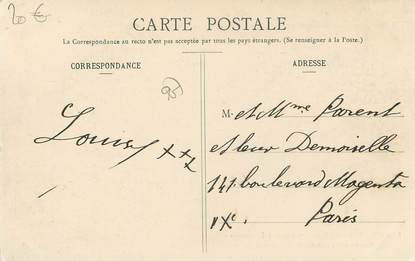 20 €
CARTE POSTALE
La Correspondance au recto n'est pas acceptée par tous les pays étrangers. (Se renseigner à la Poste.)
CORRESPONDANCE
ADRESSE
95
Louis xxx
M. et Mme Parent
et leur Demoiselle
141 boulevard Magenta
Paris
Xe.